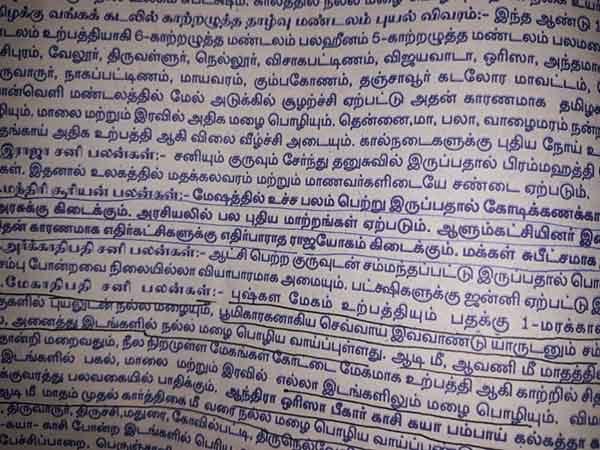 மிழக வங்கக் கடலில் காற்றழுத்த தாழ்வு மண்டலம் புயல் விவரம்:- இந்த ஆண்டு 1
டலம் உற்பத்தியாகி 6-காற்றழுத்த மண்டலம் பலஹீனம் 5-காற்றழுத்த மண்டலம் பலமடை
சிபுரம், வேலூர், திருவள்ளூர், நெல்லூர், விசாகபட்டிணம், விஜயவாடா, ஒரிஸா, அந்தமான்
ருவாரூர், நாகப்பட்டிணம், மாயவரம், கும்பகோணம், தஞ்சாவூர் கடலோர மாவட்டம்,
ான்வெளி மண்டலத்தில் மேல் அடுக்கில் சூழற்ச்சி ஏற்பட்டு அதன் காரணமாக தமிழக
ியும், மாலை மற்றும் இரவில் அதிக மழை பொழியும். தென்னை,மா, பலா, வாழைமரம் நன்ற
தங்காய் அதிக உற்பத்தி ஆகி விலை வீழ்ச்சி அடையும். கால்நடைகளுக்கு புதிய நோய் உ
இராஜா சனி பலன்கள்:- சனியும் குருவும் சேர்ந்து தனுசுவில் இருப்பதால் பிரம்மஹத்தி
கள். இதனால் உலகத்தில் மதக்கலவரம் மற்றும் மாணவர்களிடையே சண்டை ஏற்படும்.
மந்திரி சூரியன் பலன்கள்:- மேஷத்தில் உச்ச பலம் பெற்று இருப்பதால் கோடிக்கணக்கா
அரசுக்கு கிடைக்கும். அரசியலில் பல புதிய மாற்றங்கள் ஏற்படும். ஆளும்கட்சியினர் இ
தன் காரணமாக எதிர்கட்சிகளுக்கு எதிர்பாராத ராஜயோகம் கிடைக்கும். மக்கள் சுபீட்சமாக
அர்க்காதிபதி சனி பலன்கள்:- ஆட்சி பெற்ற குருவுடன் சம்மந்தப்பட்டு இருப்பதால் பொ
சம்பு போன்றவை நிலையில்லா வியாபாரமாக அமையும். பட்க்ஷிகளுக்கு ஜன்னி ஏற்பட்டு இ
மேகாதிபதி சனி பலன்கள்:- புஷ்கள மேகம் உற்பத்தியும் பதக்கு 1-மரக்கால்
குகளில் புயலுடன் நல்ல மழையும், பூமிகாரகனாகிய செவ்வாய் இவ்வாண்டு யாருடனும் சம்
ம், அனைத்து இடங்களில் நல்ல மழை பொழிய வாய்ப்புள்ளது. ஆடி மீ, ஆவணி மீ மாதத்தில்
தான்றி மறைவதும், நீல நிறமுள்ள மேகங்கள் கோடடை மேகமாக உற்பத்தி ஆகி காற்றில் சித
இடங்களில் பகல், மாலை மற்றும் இரவில் எல்லா இடங்களிலும் மழை பொழியும். விமா
க்குவரத்து பலவகையில் பாதிக்கும். ஆந்திரா ஒரிஸா பீகார் காசி கயா பம்பாய் கல்கத்தா க
ஆடி மீ மாதம் முதல் கார்த்திகை மீ வரை நல்ல மழை பொழிய வாய்ப்பு
, திருவாரூர், திருச்சி,மதுரை, கோவில்பட்டி, திருநெல்வே
-கயா- காசி போன்ற இடங்களில் பெரிய
பேச்சிப்பாறை,